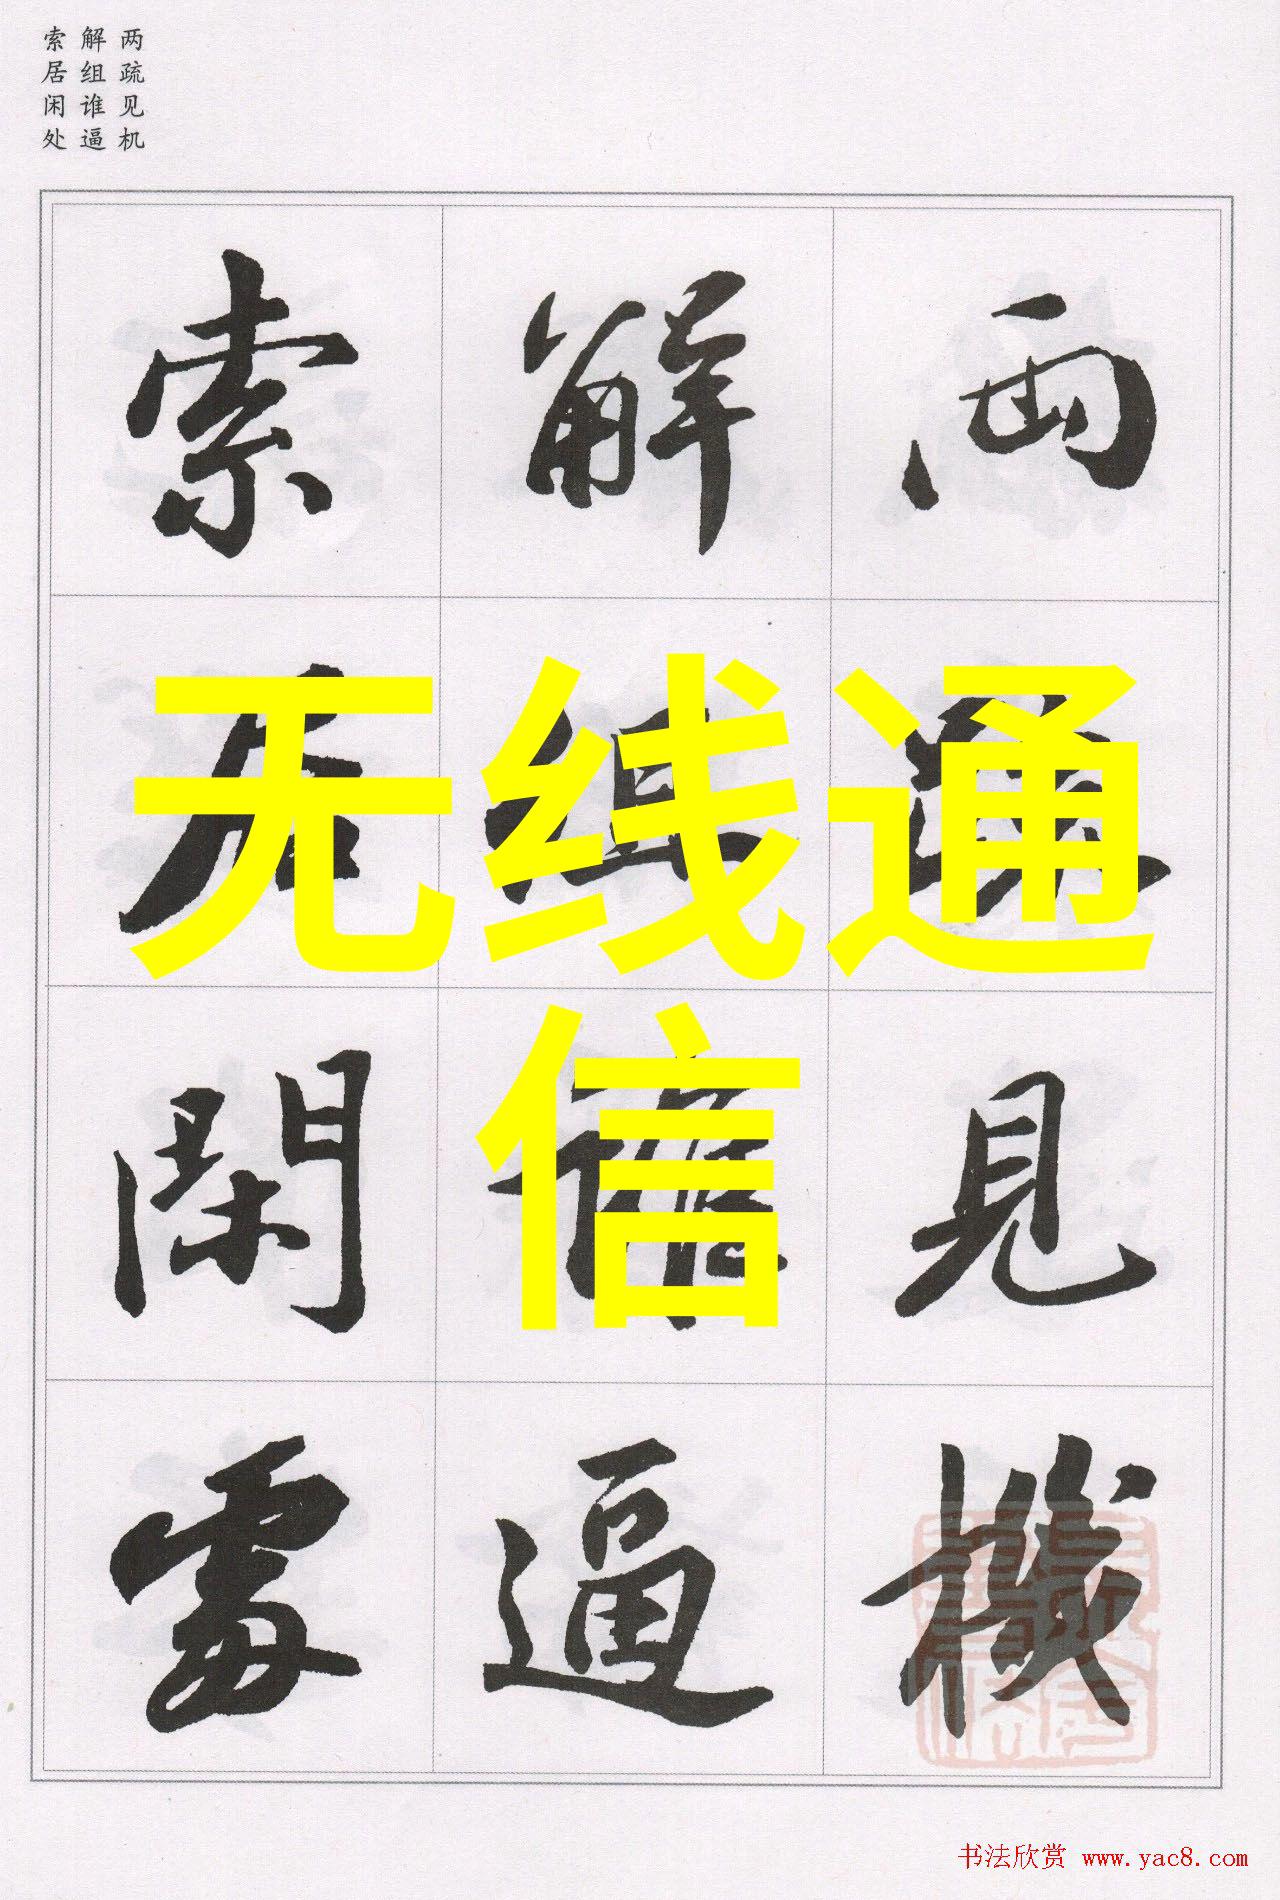 两疏见机
解组谁逼
索居闲处
兩疏見機
解組誰逼
索居閑處
无线通
信
书法欣赏 www.yac8.com